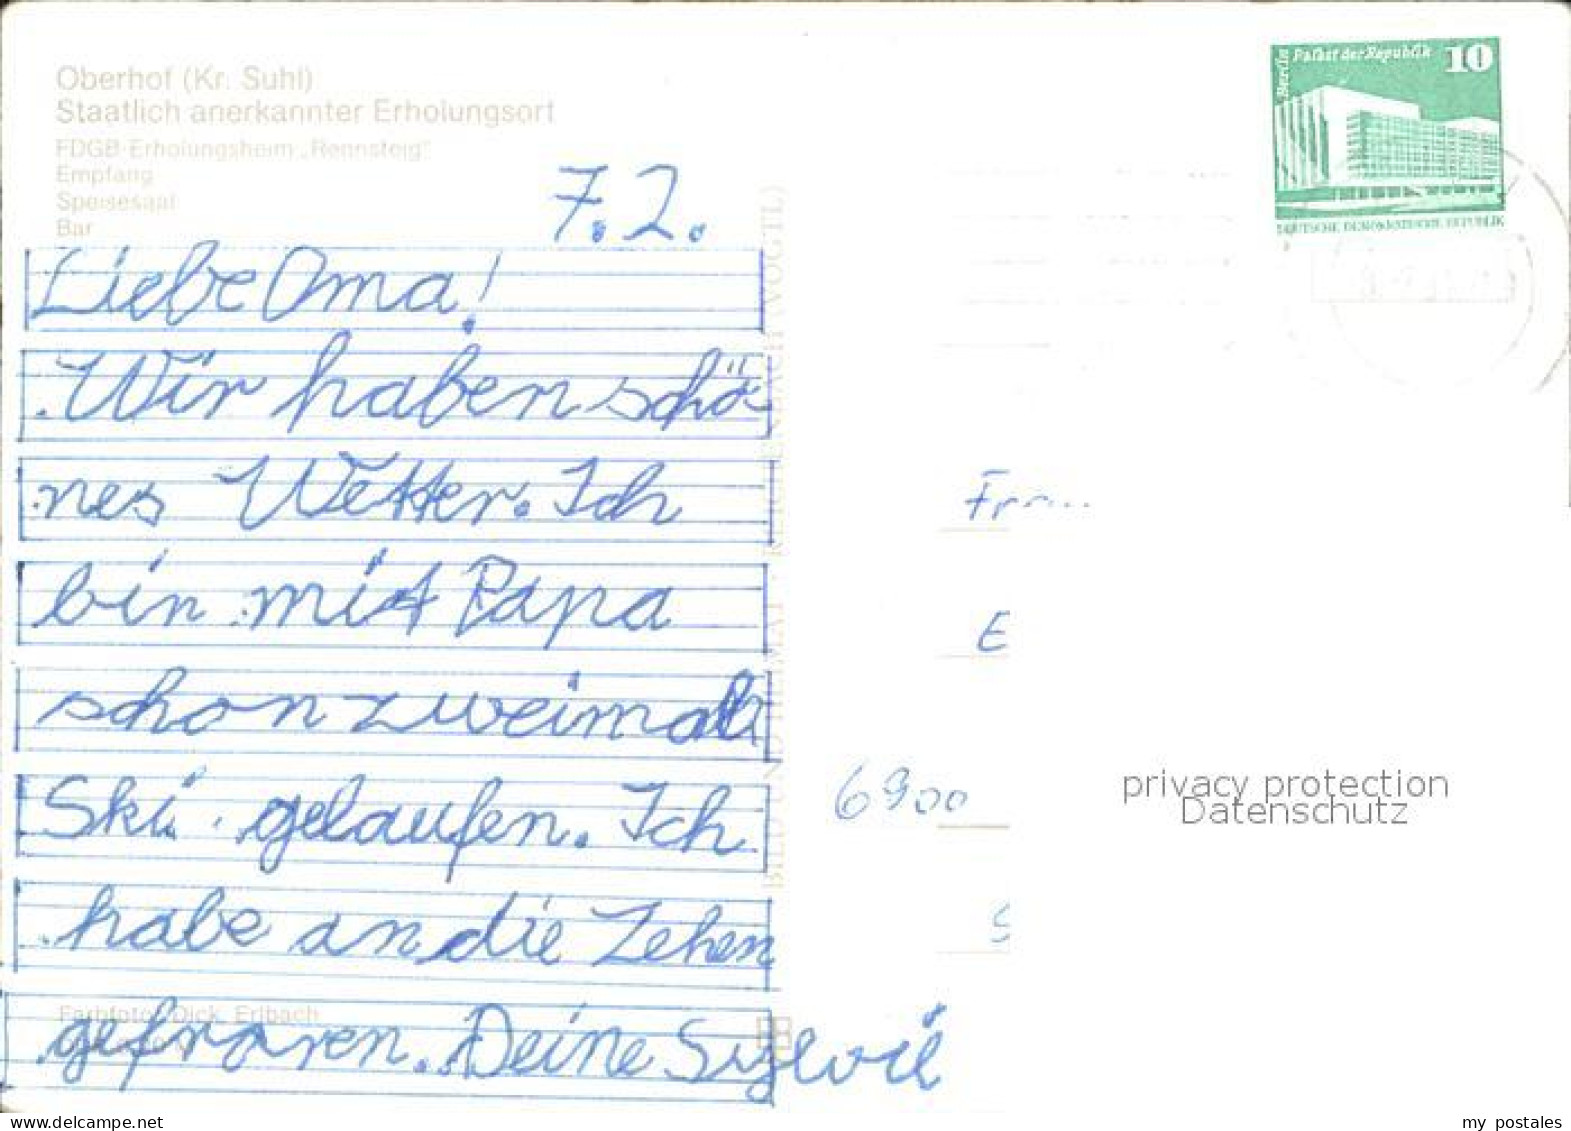 Oberhof (Kr. Suhl)
Staatlich anerkannter Erholungsort
FDGB-Erholungsheim „Rennsteig"
Empfang
Speisesaal
Bar
7.2.
Liebe Oma!
Wir haben schö-
nes Wetter. Ich
bin mit Papa
schon zweimal
Ski gelaufen. Ich
habe an die Zehen
gefroren. Deine Sylvii
Farbfoto: Dick, Erlbach
BILD UND HEIMAT REICHENBACH (VOGTL)
Berlin Palast der Republik 10
DEUTSCHE DEMOKRATISCHE REPUBLIK
E
6900
S
privacy protection
Datenschutz
www.delcampe.net
my_postales